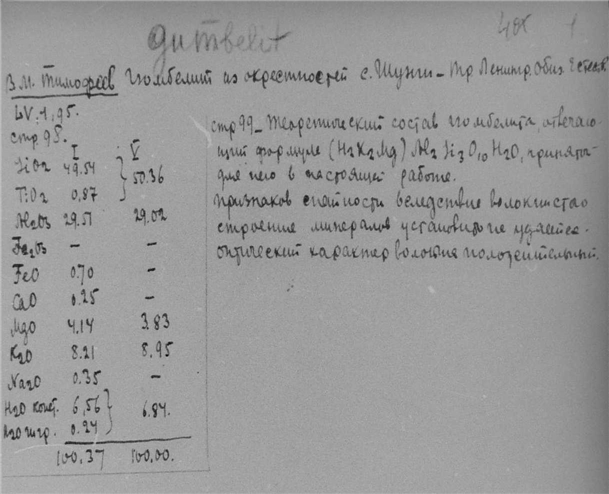 gumbelit
1
В.М. Тимофеев Гюмбелит из окрестностей с. Шунги – Тр. Ленингр. Общ. Естеств
LV. 1, 95.
стр 95.
I V
SiO2 49.54 } 50.36
TiO2 0.87
Al2O3 29.51 29.02
Fe2O3 – –
FeO 0.70 –
CaO 0.25 –
MgO 4.14 3.83
K2O 8.21 8.95
Na2O 0.35 –
H2O конст. 6,56 } 6.84.
H2O гигр. 0.24
100,37 100,00.
стр 99_ Теоретический состав гюмбелита, отвечаю-
щий формуле (H2K2Mg) Al2 Si3 O10 H2O, приняты
для него в настоящей работе.
Признаков спайности вследствие волокнистого
строение минералов установить не удается.
оптический характер волокна положительный.